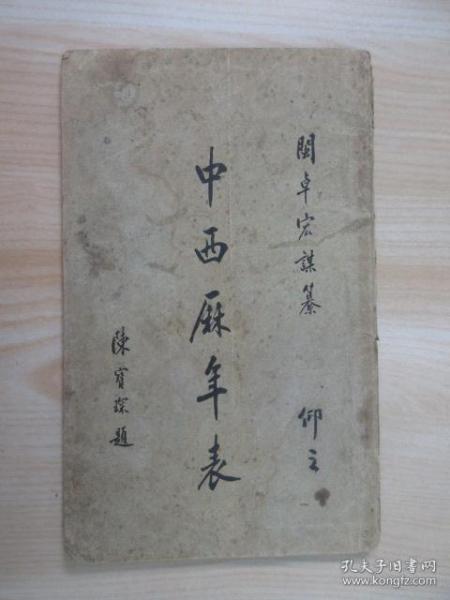 閩卓宏謀纂
仰之
中西厤年表
陳寶琛題
孔夫子旧书网
www.kongfz.com